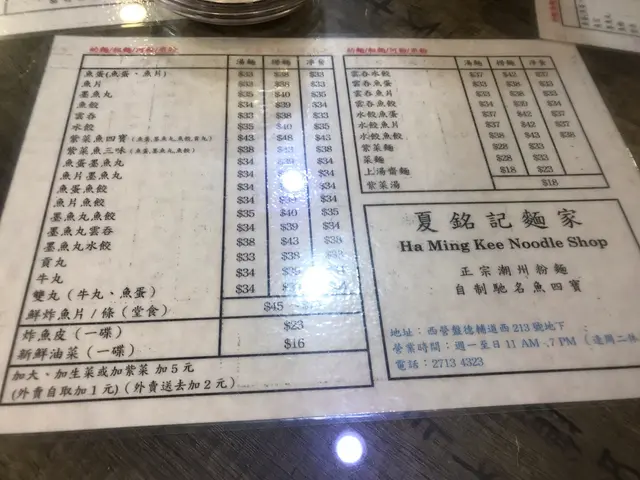 幼麵/粗麵/河粉/米粉
湯麵 撈麵 淨食
魚蛋(魚蛋、魚片) $33 $38 $33
魚片 $33 $38 $33
墨魚丸 $35 $40 $35
魚餃 $34 $39 $34
雲吞 $33 $38 $33
水餃 $35 $40 $35
紫菜魚四寶(魚蛋,墨魚丸,魚餃,貢丸) $43 $48 $43
紫菜魚三味(魚蛋,墨魚丸,魚餃) $38 $43 $38
魚蛋墨魚丸 $34 $34
魚片墨魚丸 $34 $34
魚蛋魚餃 $34 $34
魚片魚餃 $34 $34
墨魚丸魚餃 $35 $40 $35
墨魚丸雲吞 $34 $39 $34
墨魚丸水餃 $38 $43 $38
貢丸 $33 $33
牛丸 $34
雙丸(牛丸、魚蛋) $34
鮮炸魚片/條(堂食) $45
炸魚皮(一碟) $23
新鮮油菜(一碟) $16
加大、加生菜或加紫菜 加5元
(外賣自取加1元)(外賣送去加2元)
幼麵/粗麵/河粉/米粉
湯麵 撈麵 淨食
雲吞水餃 $37 $42 $37
雲吞魚蛋 $33 $38 $33
雲吞魚片 $33 $38 $33
雲吞魚餃 $34 $39 $34
水餃魚蛋 $37 $42 $37
水餃魚片 $37 $42 $37
水餃魚餃 $38 $43 $38
紫菜麵 $28 $33
菜麵 $28 $33
上湯齋麵 $18 $23
紫菜湯 $18
夏銘記麵家
Ha Ming Kee Noodle Shop
正宗潮州粉麵
自制馳名魚四寶
地址:西營盤德輔道西213號地下
營業時間:週一至日11 AM -7 PM (逢周二休
電話:2713 4323